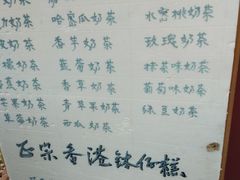 奶茶 哈密瓜奶茶 水密桃奶茶
奶茶 香芋奶茶 玫瑰奶茶
奶茶 蓝莓奶茶 抹茶味奶茶
奶茶 香草奶茶 葡萄味奶茶
果奶茶 青苹果奶茶 绿豆奶茶
草莓奶茶 西瓜奶茶
正宗香港钵仔糕